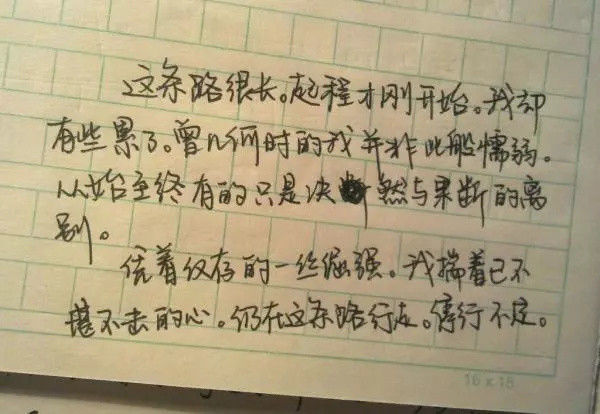 这条路很长。起程才刚开始。我却
有些累了。曾几何时的我并非此般懦弱。
从始至终有的只是决然与果断的离
别。
凭着仅存的一丝倔强。我揣着已不
堪不击的心。仍在这条路行走。停行不定。
16×18